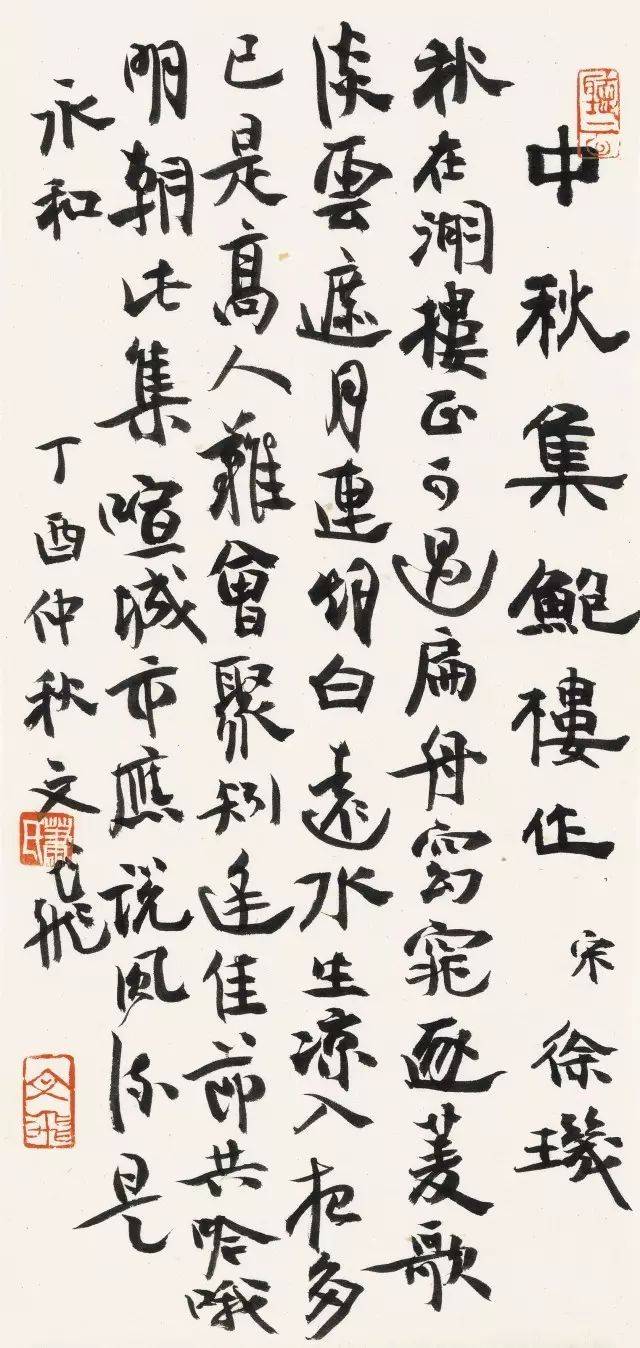 中秋集鮑樓作 宋 徐璣
秋在湖樓正可過扁舟窈窕逐菱歌
淡雲遮月連白遠水生涼入夜多
已是高人難會聚矧逢佳節共吟哦
明朝此集喧城市應說風流是
永和 丁酉仲秋文飛
蕭氏
文飛